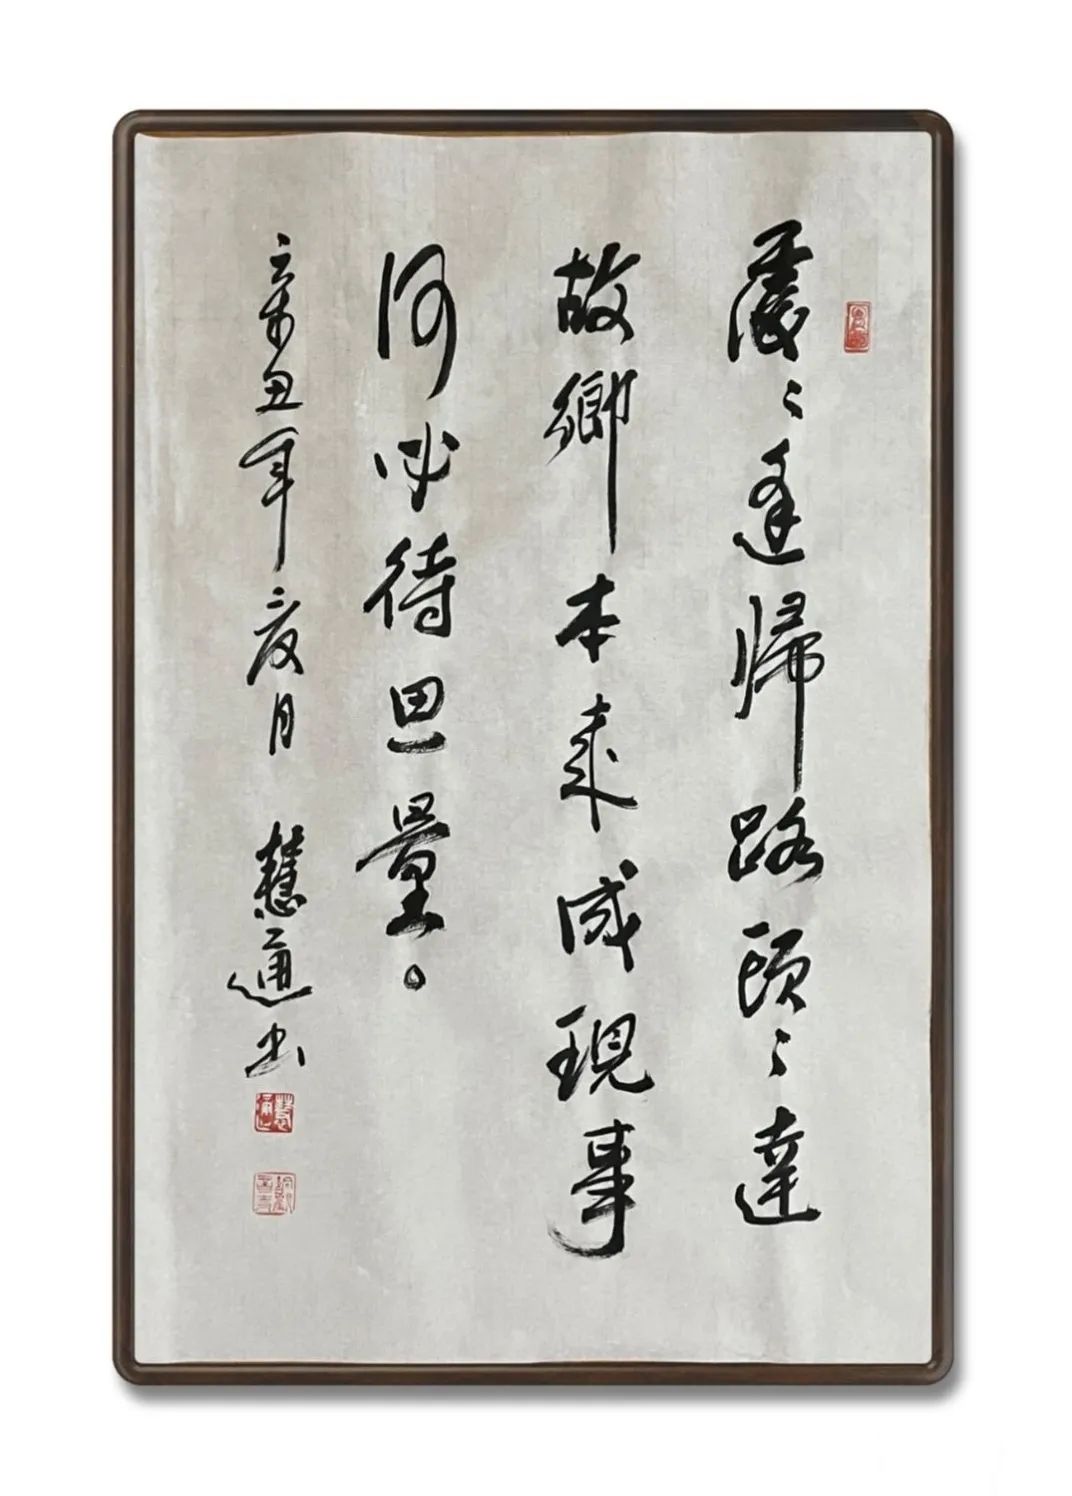 處〻逢歸路頭〻達
故鄉本來成現事
何必待思量。
辛丑年夏月 慧通书
慧通